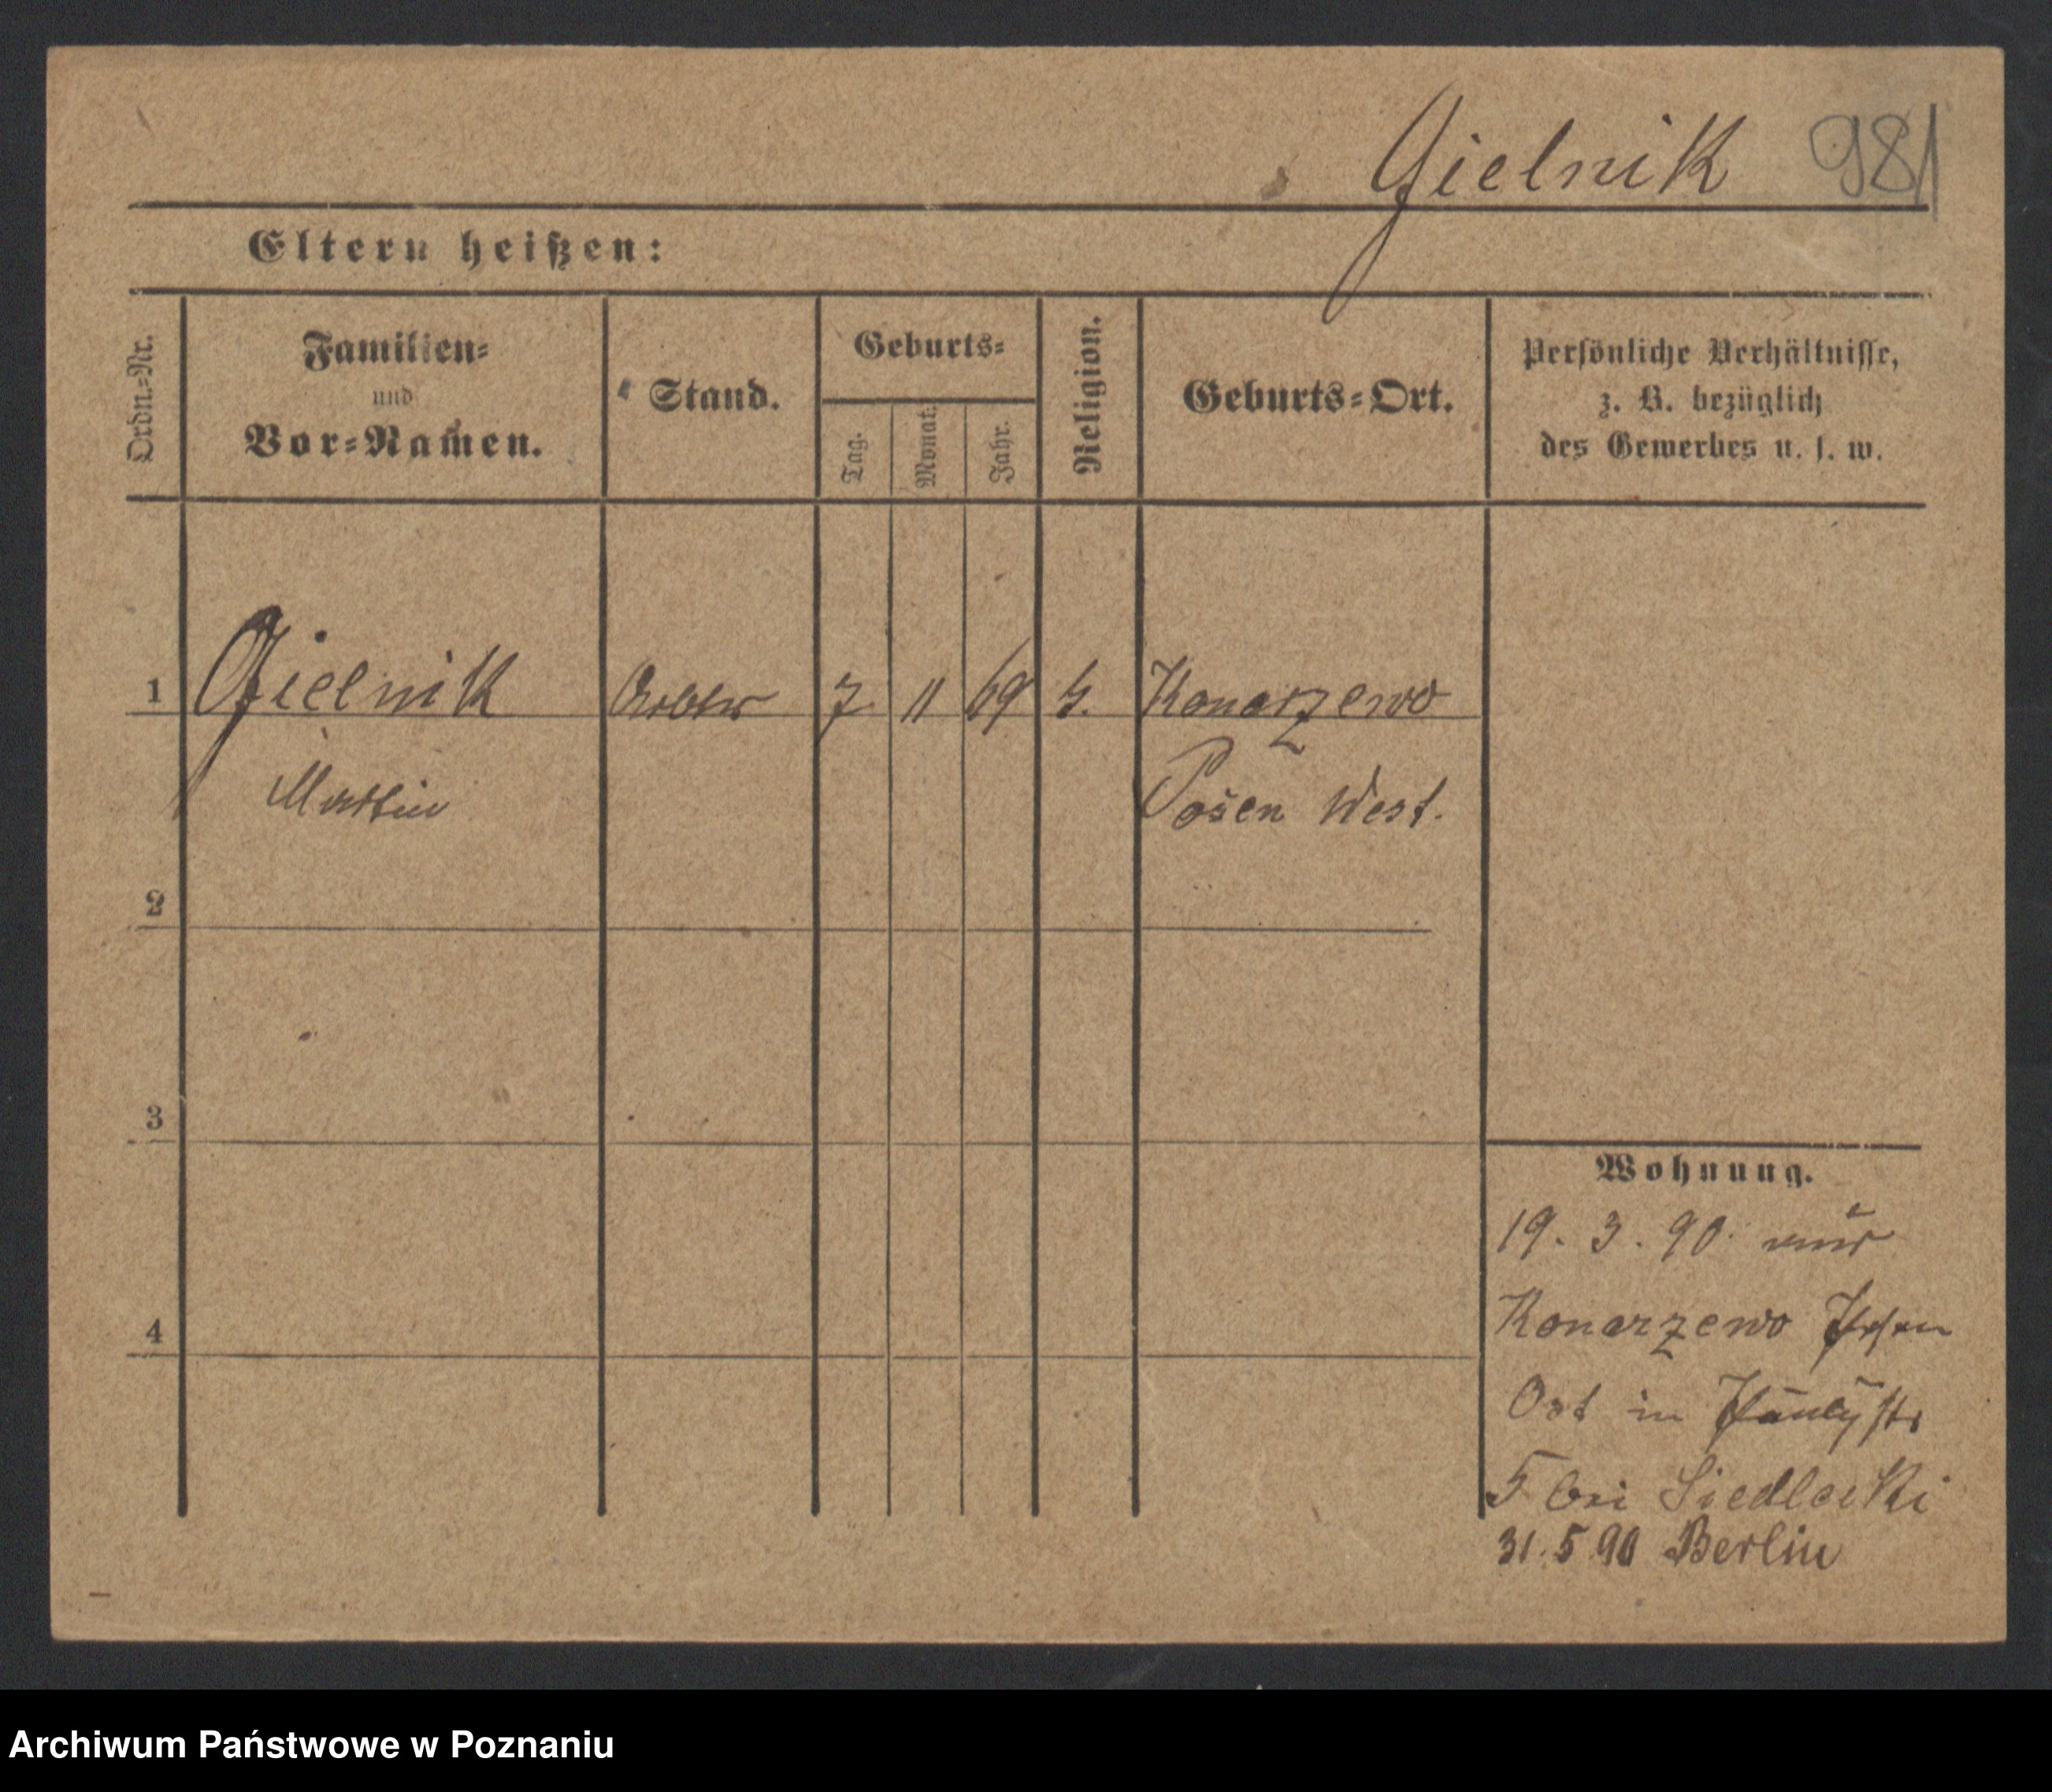 Gielnik 981
Eltern heißen:
Ordn.-Nr.
Familien-
und
Vor-Namen.
Stand.
Geburts-
Tag.
Monat.
Jahr.
Religion.
Geburts-Ort.
Persönliche Verhältnisse,
z. B. bezüglich
des Gewerbes u. s. w.
1 Gielnik 7 11 69 Konarzewo
Martin Posen West.
2
3
4
Wohnung.
19. 3. 90
Konarzewo
Ost in
5 bei Siedlecki
31. 5 90 Berlin
Archiwum Państwowe w Poznaniu